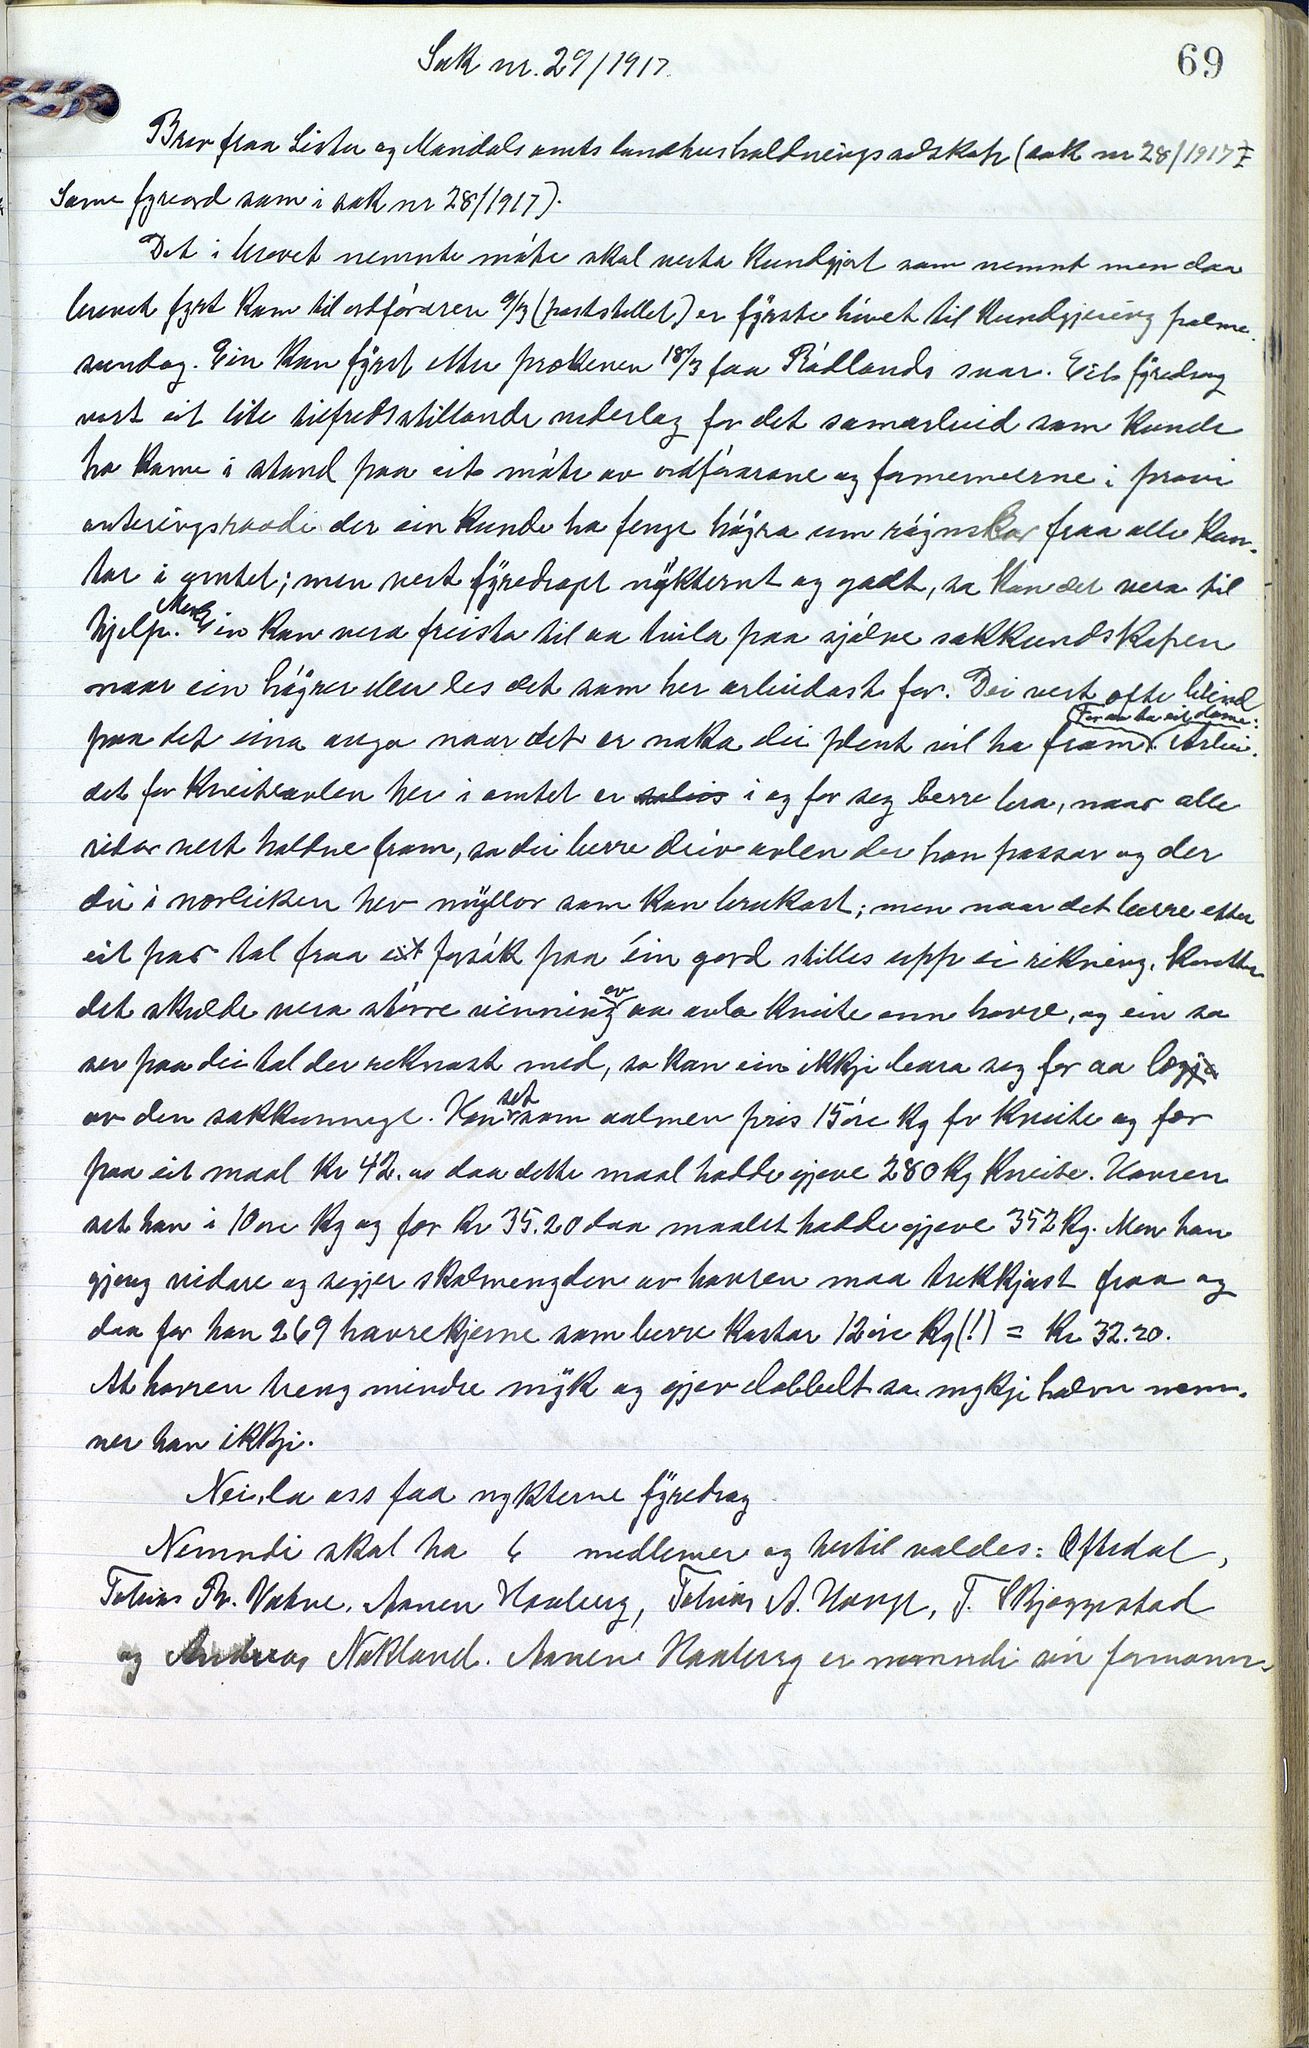 69
Sak nr. 29/1917.
Brev fraa Lister og Mandals amts landhushaldningsselskap (sak nr 28/1917
Same fyreord som i sak nr 28/1917).
Det i brevet nemnte møte skal verta kundgjort som nemnt men daa
brevet fyrst kom til ordføraren 9/3 (poststellet) er fyrste høvet til kundgjering palme-
sundag. Ein kan fyrst etter prekenen 18/3 faa Rødlands svar. Eit fyredrag
vert eit lite tilfredsstillande vederlag for det samarbeid som kunde
ha kome i stand paa eit møte av ordførarane og formennerne i provi
anteringsraadi der ein kunde ha fenge høyra um røynslor fraa alle kan-
tar i amtet; men vert fyredraget nykternt og godt, so kan det vera til
hjelp. Men ein kan vera freista til aa tvila paa sjølve sakkundskapen
naar ein høyrer eller les det som her arbeidast for. Dei vert ofte blind
paa det eina auga naar det er noko dei plent vil ha fram. For aa ta eit døme: Arbei-
det for kveiteavlen her i amtet er i og for seg berre bra, naar alle
sidor vert haldne fram, so dei berre driv avlen der han passar og der
dei i nærleiken hev myllor som kan brukast; men naar det berre etter
eit par tal fraa eit forsøk paa éin gard stilles upp ei rikning, koretter
det skulde vera større vinning av aa avla kveite enn havre, og ein so
ser paa dei tal der reknast med, so kan ein ikkje bara seg for aa lægja
av den sakkunnege. Han set som aalmen pris 15 øre kg for kveite og fær
paa eit maal kr 42.00 daa dette maal hadde gjeve 280 kg kveite. Havren
set han i 10 øre kg og fær kr 35.20 daa maalet hadde gjeve 352 kg. Men han
gjeng vidare og segjer skalmengden av havren maa trekkjast fraa og
daa fær han 269 havrekjerne som berre kostar 12 øre kg(!) = kr 32.20.
At havren treng mindre myk og gjev dobbelt so mykje halm nem-
ner han ikkje.
Nei, la oss faa nykterne fyredrag
Nemndi skal ha 6 medlemer og hertil valdes: Oftedal,
Tobias Tr. Valve, Aanen Haaberg, Tobias A. Hauge, T. Skjeggestad
og Andreas Nøkland. Aanen Haaberg er nemndi sin formann.